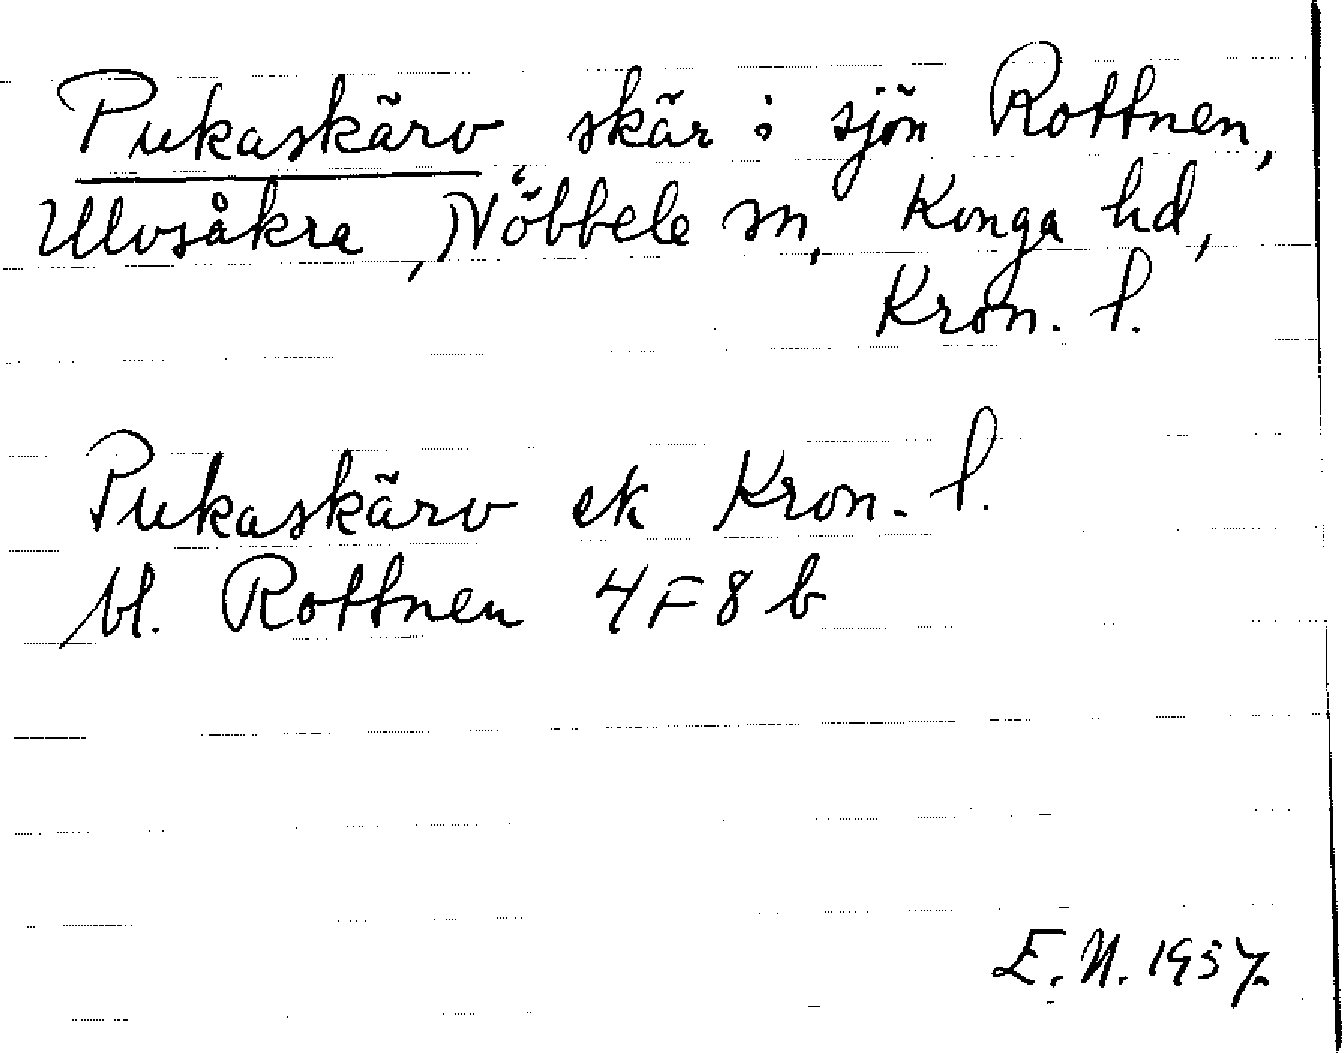 Pukaskärv skär i sjön Rottnen,
Ulvsåkra, Nöbbele sn, Konga hd,
Kron. l.
Pukaskärv ek Kron. l.
bl. Rottnen 4F8b
E.N. 1957.